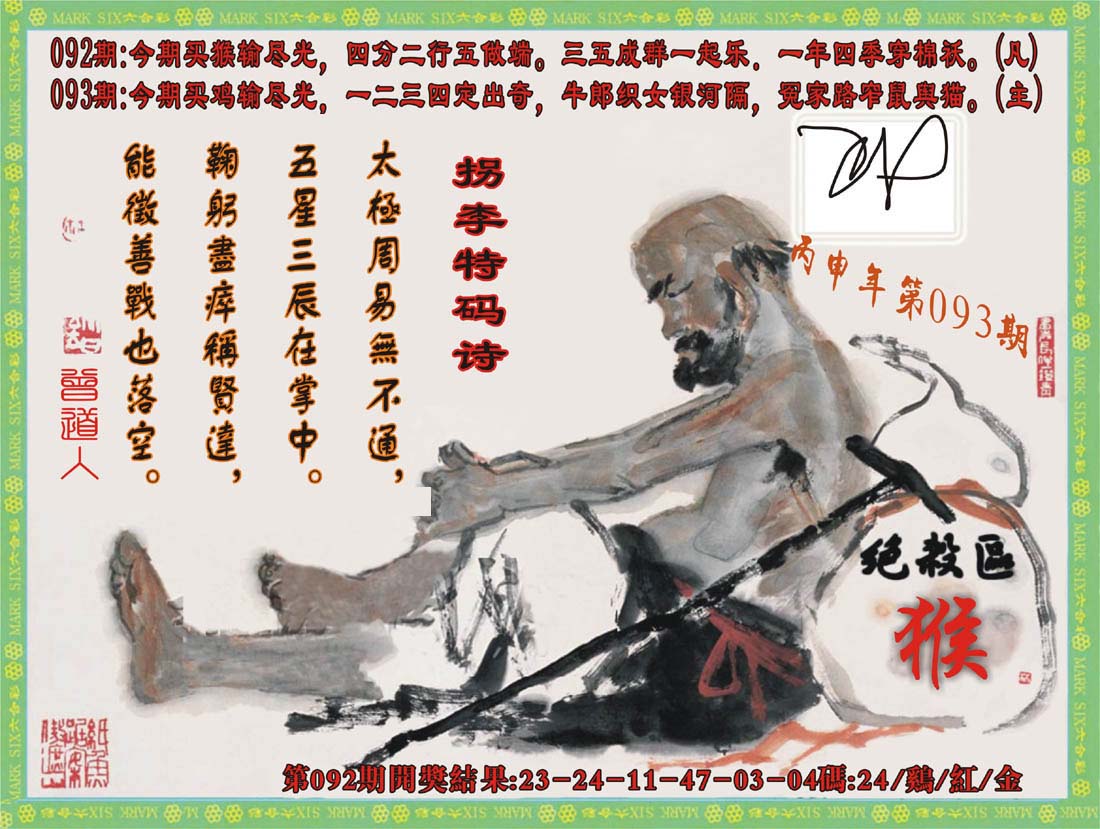 092期:今期买猴输尽光,四分二行五做端。三五成群一起乐.一年四季穿棉袄。(凡)
093期:今期买鸡输尽光,一二三四定出奇,牛郎织女银河隔,冤家路窄鼠與猫。(主)
拐李特码诗
太極周易無不通,
五星三辰在掌中。
鞠躬盡瘁稱賢達,
能徵善戰也落空。
曾道人
丙申年第093期
绝殺區
猴
第092期開獎結果:23-24-11-47-03-04碼:24/鷄/紅/金
MARK SIX六合彩